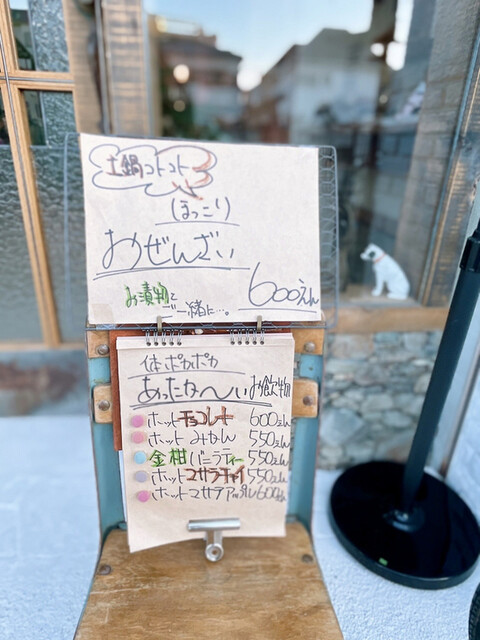 土鍋コトコト
(ほっこり)
おぜんざい
お漬物と
ご一緒に…。
600えん
体ポカポカ
あったか〜いお飲物
ホットチョコレート 600えん
ホットみかん 550えん
金柑バニラティー 550えん
ホットマサラチャイ 550えん
ホットマサラアップル 600えん